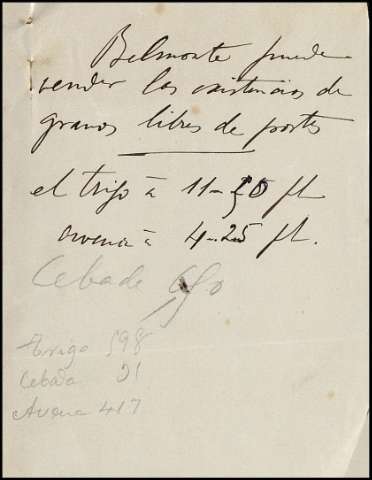 Belmonte puede
vender las existencias de
granos libres de portes
el trigo á 11-50 pt
avena á 4-25 pt.
Cebada
Trigo 598
Cebada 21
Avena 417